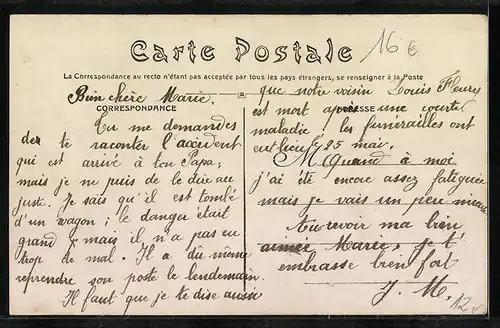 Carte Postale
16 €
La Correspondance au recto n'étant pas acceptée par tous les pays étrangers, se renseigner à la Poste
Bien chère Marie,
CORRESPONDANCE
Tu me demandes
de te raconter l'accident
qui est arrivé à ton Papa;
mais je ne puis de le dire au
juste. Je sais qu'il est tombé
d'un wagon; le danger était
grand, mais il n'a pas eu
trop de mal. Il a dû même
reprendre son poste le lendemain.
Il faut que je te dise aussi
que notre voisin Louis Fleury
est mort après une courte
ADRESSE
maladie, les funérailles ont
eut lieu le 25 mai.
M Quand à moi
j'ai été encore assez fatiguée
mais je vais un peu mieux
Au revoir ma bien
aimée Marie, je t'
embrasse bien fort
J. M.
12